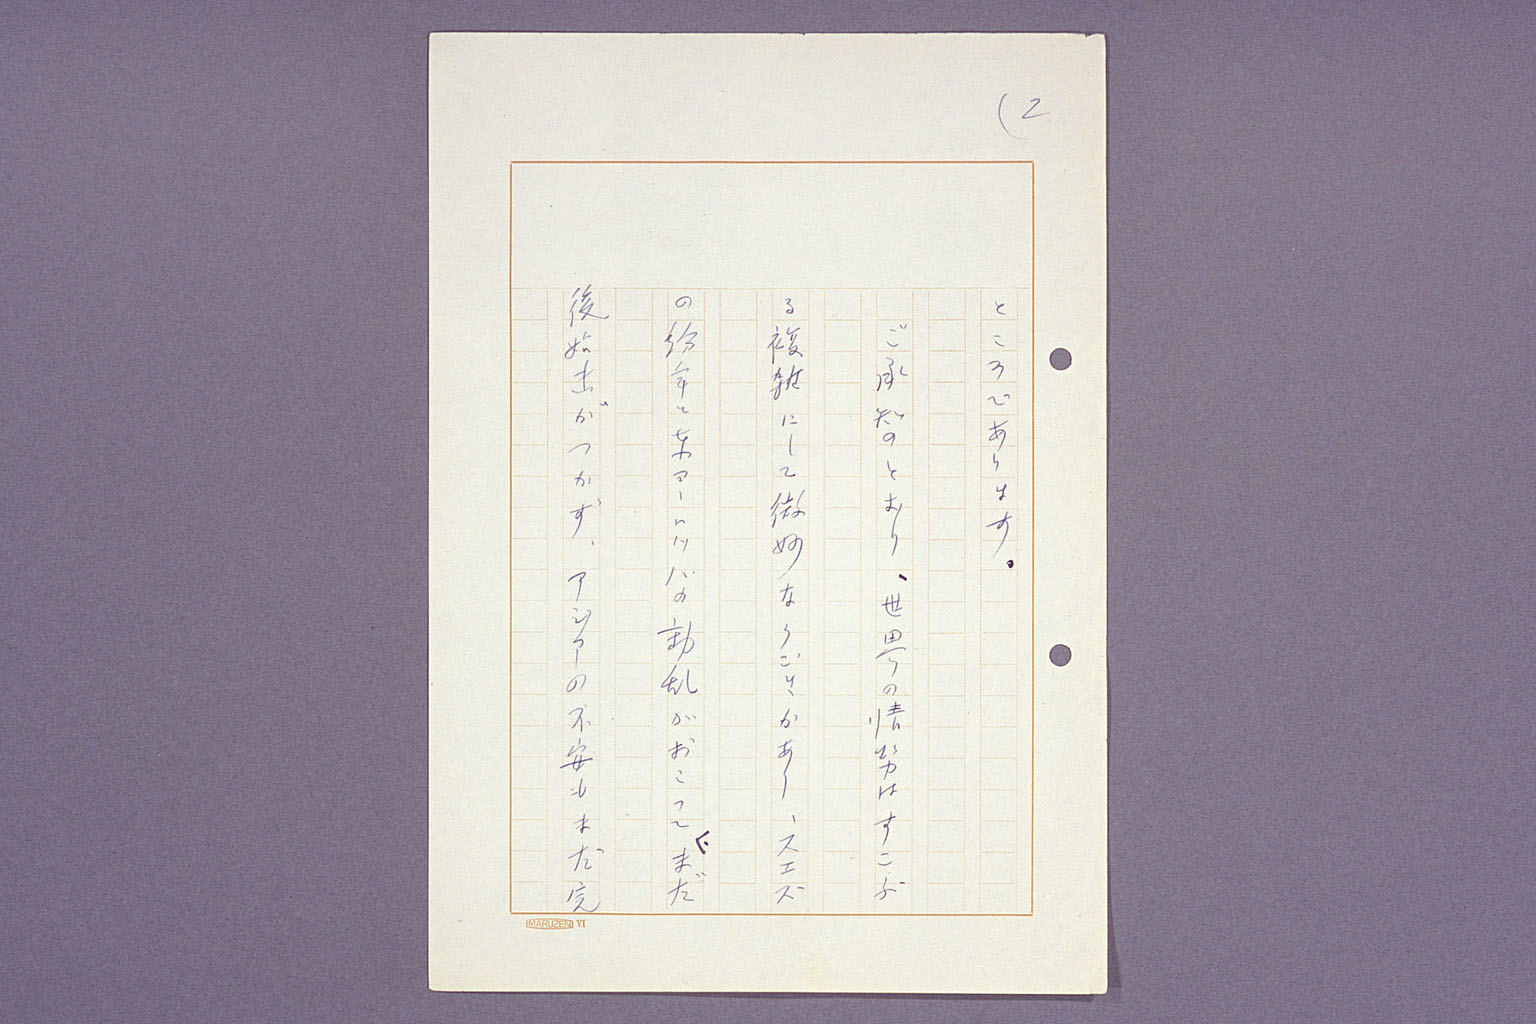 (2
ところであります。
ご承知のとおり、世界の情勢はすこぶ
る複雑にして微妙なうごきがあり、スエズ
の紛争と東ヨーロッパの動乱がおこって、まだ
後始末がつかず、アジアーの不安もまだ完
MARUZEN VI